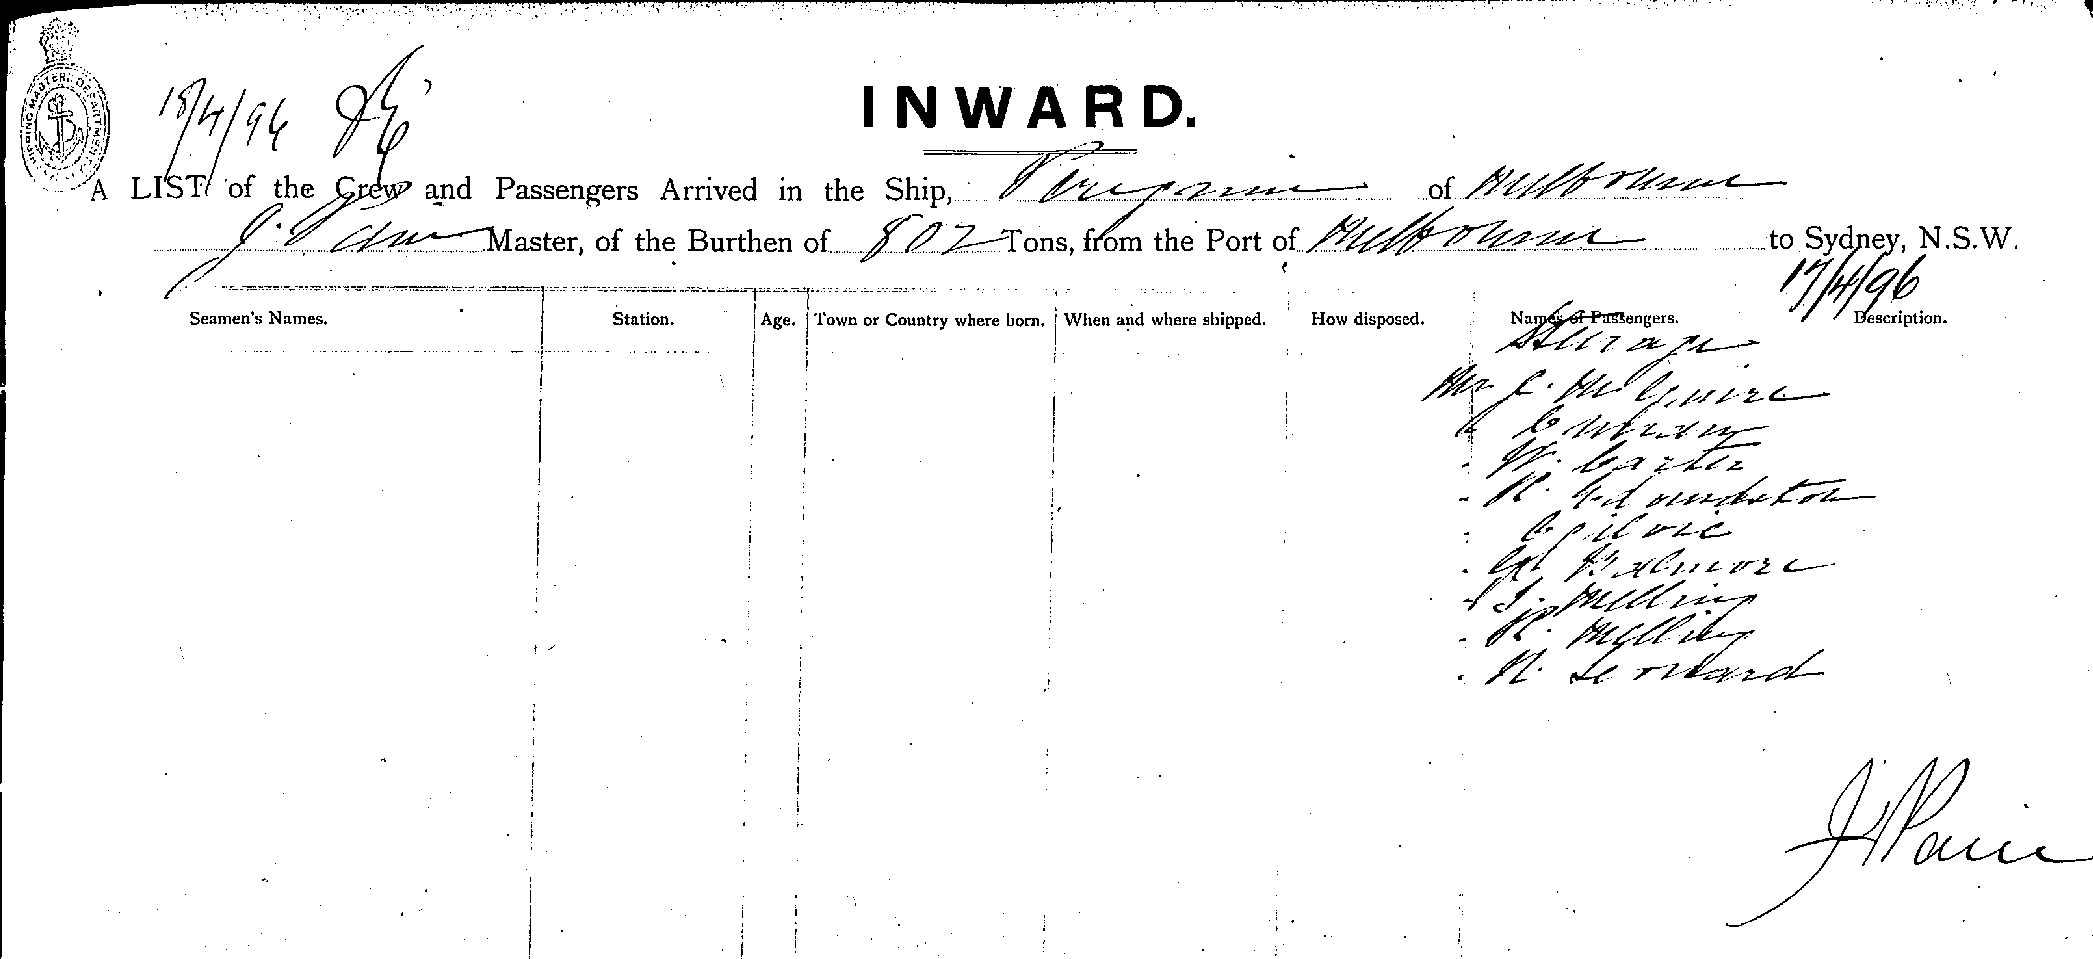 18/4/96
INWARD.
A LIST of the Crew and Passengers Arrived in the Ship, Peregrine of Melbourne
J. Pain Master, of the Burthen of 802 Tons, from the Port of Melbourne to Sydney, N.S.W.
17/4/96
Seamen's Names. Station. Age. Town or Country where born. When and where shipped. How disposed. Names of Passengers. Description.
Steerage
Mr J. McGuire
W. Carter
R. Edmundston
Ogilvie
Balmore
Melling
R. Melling
N. Leonard
J Pain